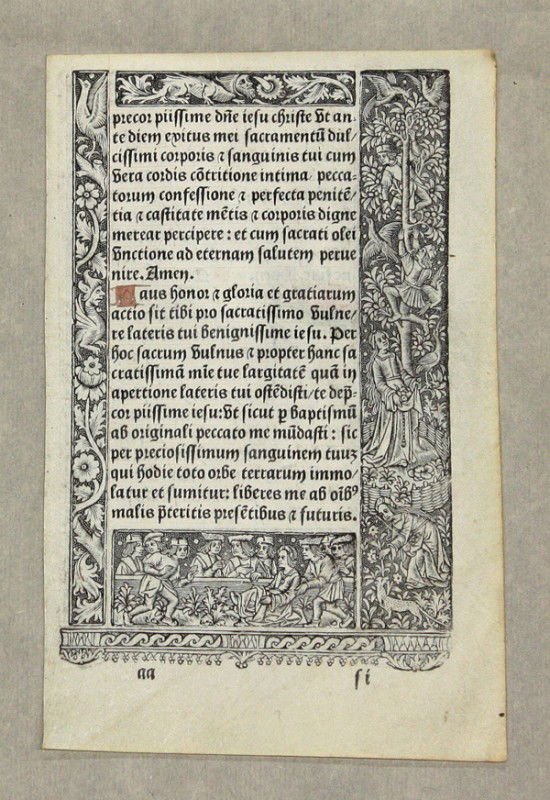 precor piissime dn̄e iesu christe vt an-
te diem exitus mei sacramentū dul-
cissimi corporis ⁊ sanguinis tui cum
vera cordis cōtritione intima/ pecca-
torum confessione ⁊ perfecta penitē/
tia ⁊ castitate mētis ⁊ corporis digne
merear percipere: et cum sacrati olei
vnctione ad eternam salutem perue
nire. Amen.
Laus honor ⁊ gloria et gratiarum
actio sit tibi pro sacratissimo vulne/
re lateris tui benignissime iesu. Per
hoc sacrum vulnus ⁊ propter hanc sa
cratissimā mīe tue largitatē quā in
apertione lateris tui ostēdisti/ te dep̄-
cor piissime iesu: vt sicut ꝑ baptismū
ab originali peccato me mūdasti: sic
per preciosissimum sanguinem tuuꝫ
qui hodie toto orbe terrarum immo/
latur et sumitur: liberes me ab oīb⁹
malis p̄teritis presētibus ⁊ futuris.
aa
f i